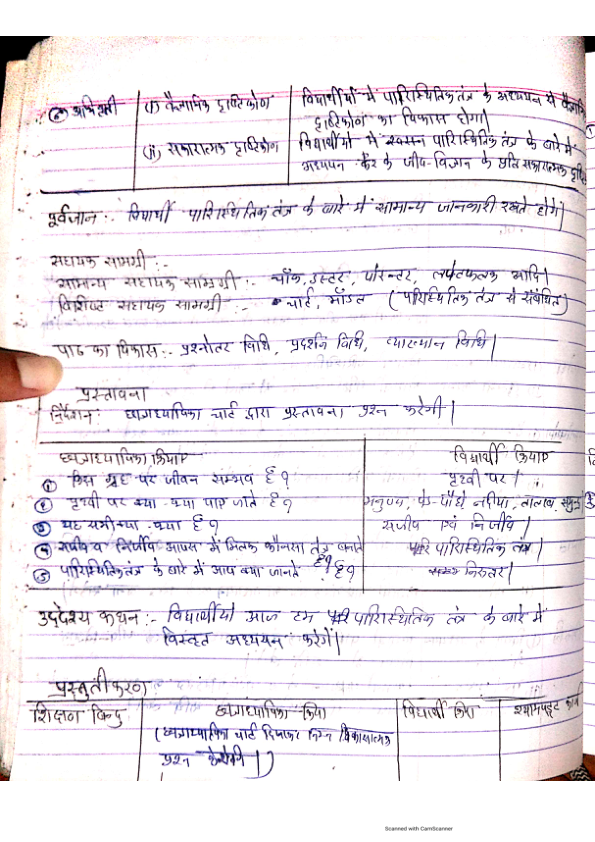 अभिवृत्ती (i) वैज्ञानिक दृष्टिकोण विद्यार्थीयों में पारिस्थितिक तंत्र के अध्ययन से
दृष्टिकोण का विकास होगा।
(ii) सकारात्मक दृष्टिकोण विद्यार्थीयो में पारिस्थितिक तंत्र के बारे में
अध्ययन करके जीव-विज्ञान के प्रति सकारात्मक
पूर्वज्ञान:- विद्यार्थी पारिस्थितिक तंत्र के बारे में सामान्य जानकारी रखते होंगे।
सहायक सामग्री:-
सामान्य सहायक सामग्री:- चॉक, डस्टर, पॉइन्टर, लपेटफलक आदि।
विशिष्ट सहायक सामग्री:- चार्ट, मॉडल (पारिस्थितिक तंत्र से संबंधित)
पाठ का विकास:- प्रश्नोतर विधि, प्रदर्शन विधि, व्याख्यान विधि।
प्रस्तावना
निर्देशन: छात्राध्यापिका चार्ट द्वारा प्रस्तावना प्रश्न करेगी।
छात्राध्यापिका क्रियाए विद्यार्थी क्रियाए
① किस ग्रह पर जीवन सम्भव है? पृथ्वी पर।
② पृथ्वी पर क्या-क्या पाए जाते है? मनुष्य, पेड-पौधे नदिया, तालाब, समुद्र
③ यह सभी क्या-क्या है? सजीव एवं निर्जीव।
④ सजीव व निर्जीव आपस में मिलकर कौनसा तंत्र बनाते है? पारिस्थितिक तंत्र।
⑤ पारिस्थितिक तंत्र के बारे में आप क्या जानते है? निरुतर।
उद्देश्य कथन:- विद्यार्थीयो आज हम पारिस्थितिक तंत्र के बारे में
विस्तृत अध्ययन करेंगें।
प्रस्तुतीकरण
शिक्षण बिन्दु छात्राध्यापिका क्रिया विद्यार्थी क्रिया श्यामपट्ट कार्य
(छात्राध्यापिका चार्ट दिखाकर निम्न विकासात्मक
प्रश्न करेगी।)
Scanned with CamScanner